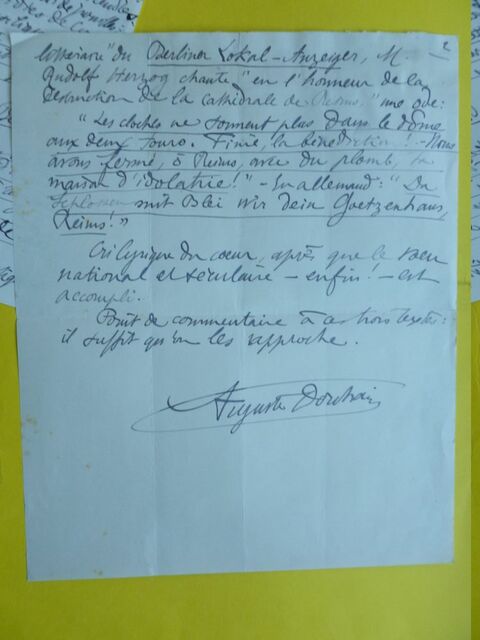 2
littéraire" du Berliner Lokal-Anzeyer, M.
Rudolf Herzog chante "en l'honneur de la
destruction de la cathédrale de Reims," une ode:
"Les cloches ne sonnent plus dans le dôme
aux deux tours. Finie, la bénédiction!.. Nous
avons fermé, ô Reims, avec du plomb, ta
maison d'idolatrie!" - En allemand: "Du
schlossen mit Blei wir dein Goetzenhaus,
Reims!"
Cri lyrique du coeur, après que le voeu
national et séculaire - enfin! - est
accompli.
Point de commentaire à ces trois textes:
il suffit qu'on les rapproche.
Auguste Dorchain